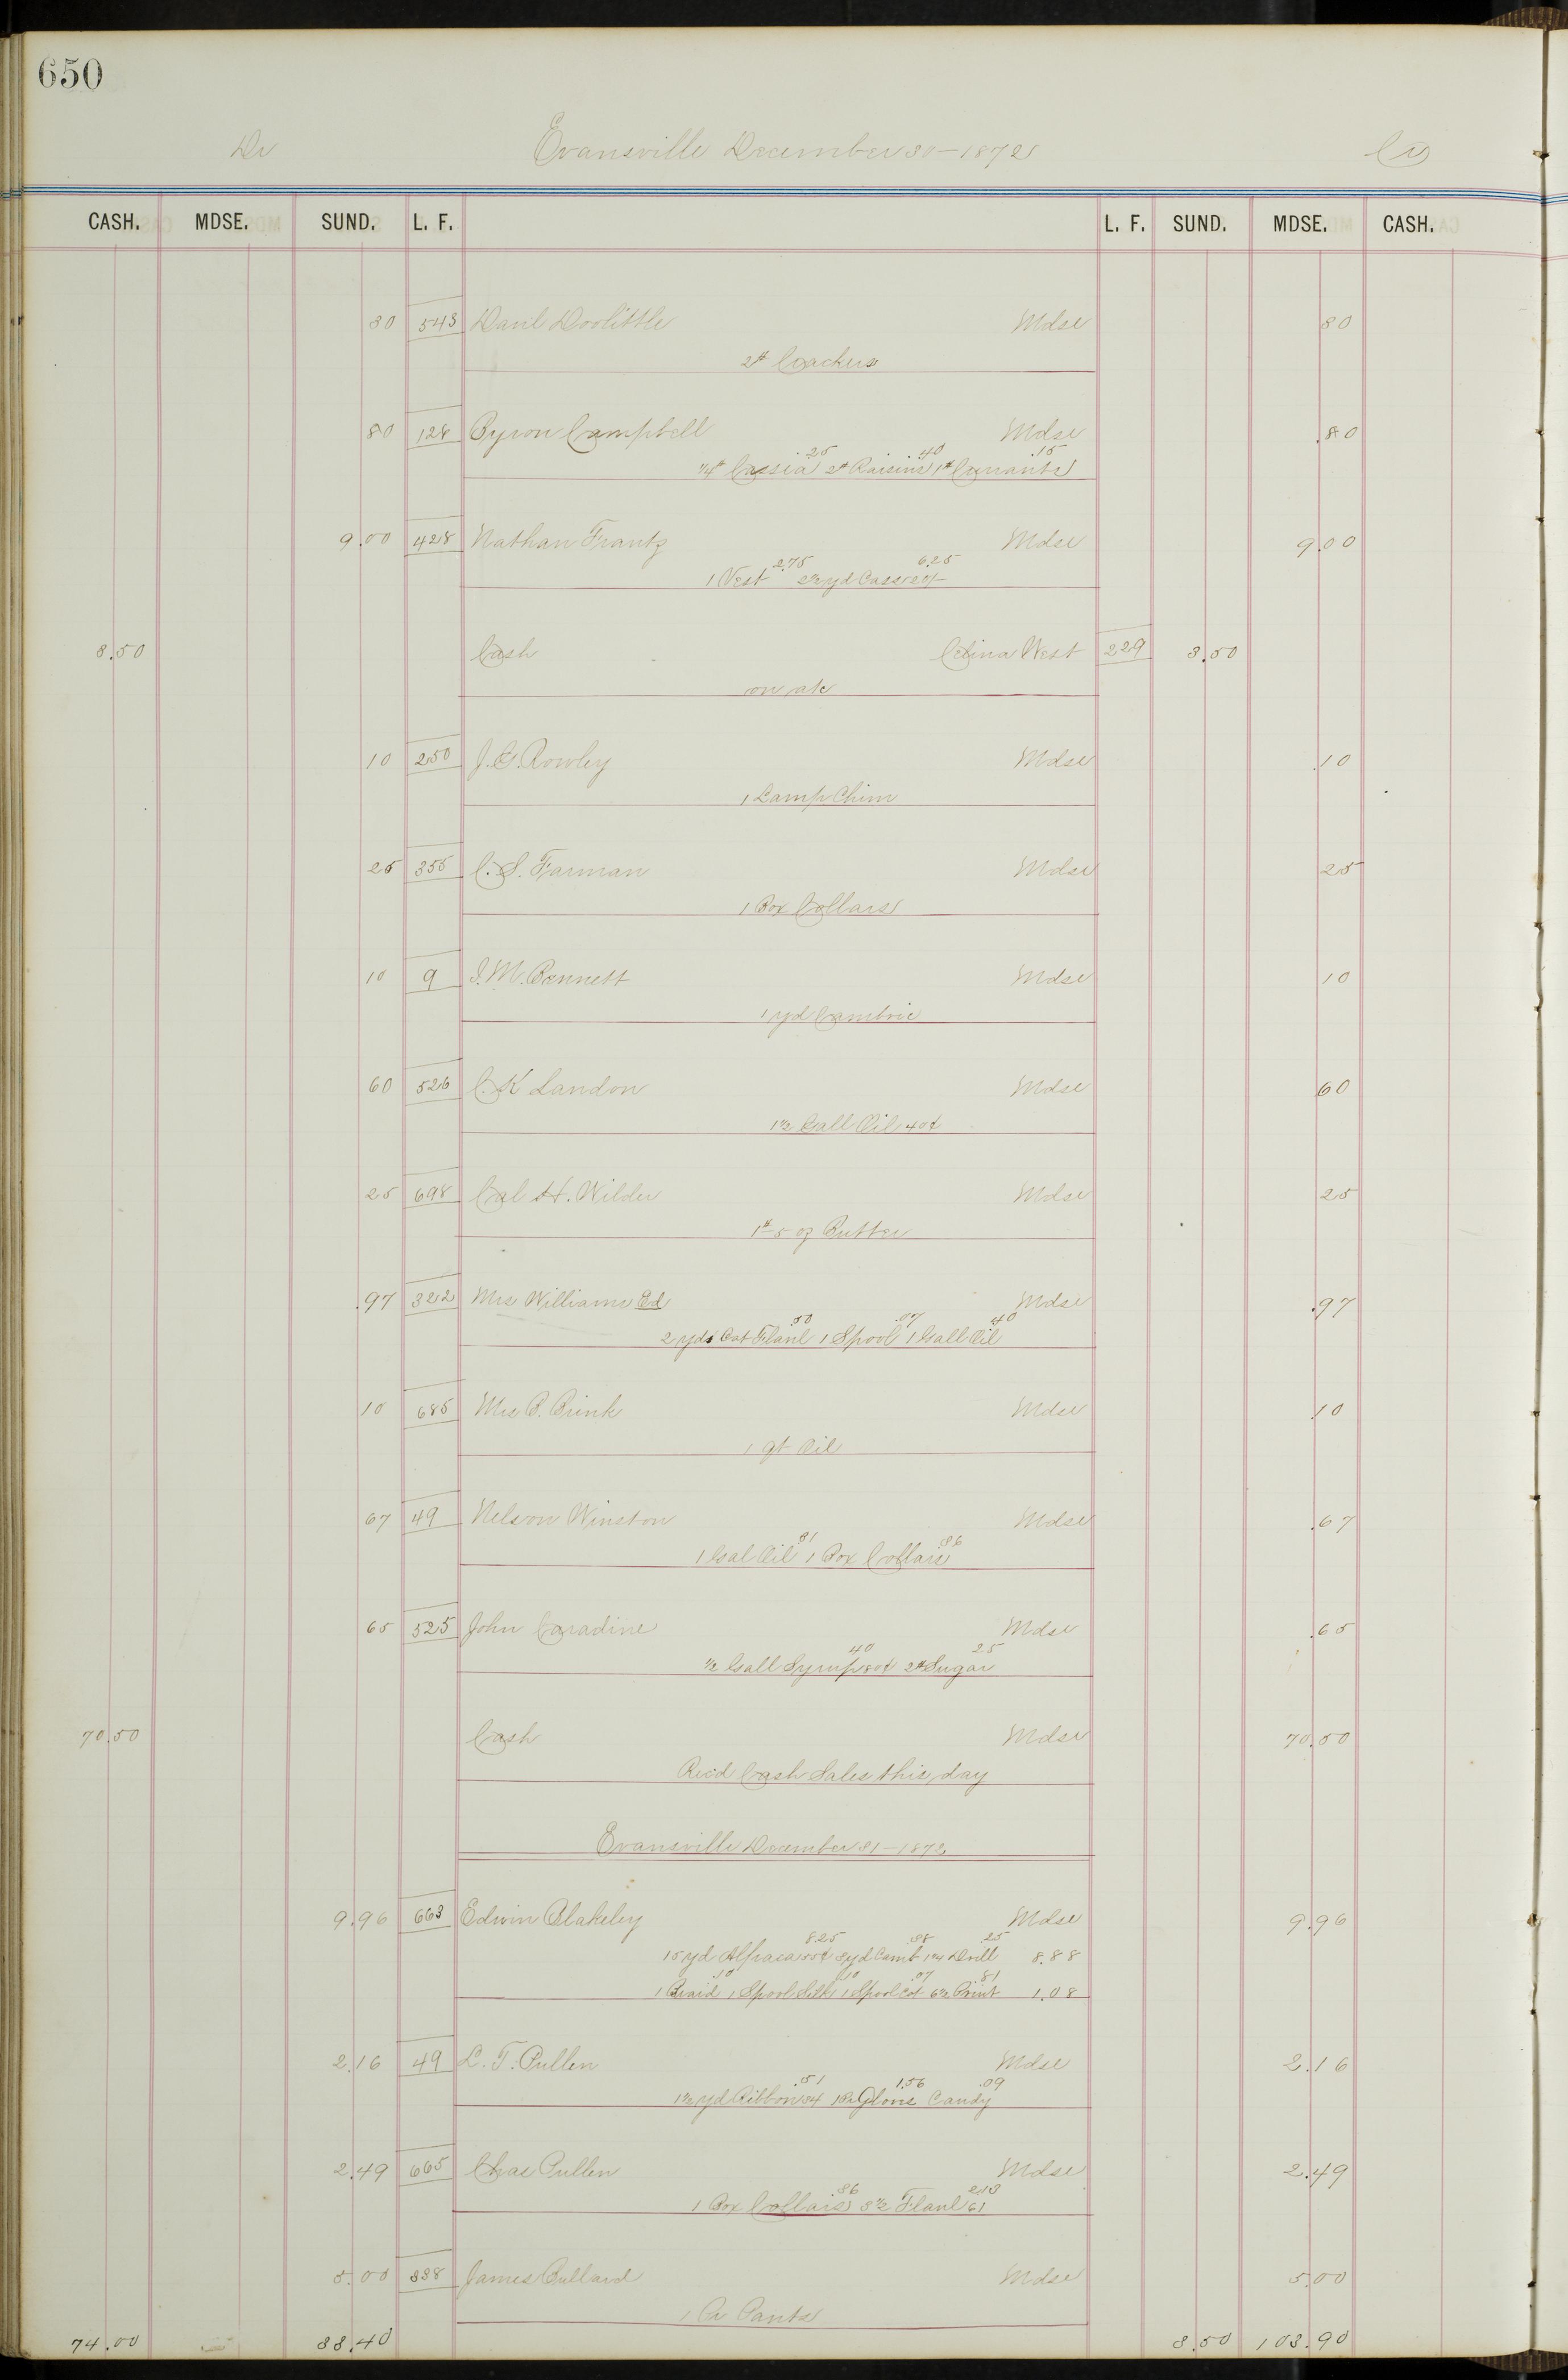 650
Dr Evansville December 30-1872 Cr
CASH. MDSE. SUND. L. F. L. F. SUND. MDSE. CASH.
30 543 Danl Doolittle Mdse 30
2# Crackers
80 128 Byron Campbell Mdse .80
.25 .40 .15
1/4# Cassia 2# Raisins 1# Currants
9.00 428 Nathan Frantz Mdse 9.00
2.75 6.25
1 Vest 2 1/2 yd Cass 20/-
3.50 Cash Celina West 229 3.50
on a/c
10 250 J. G. Rowley Mdse .10
1 Lamp Chim
25 355 C. S. Farman Mdse 25
1 Box Collars
10 9 I. M. Bennett Mdse 10
1 yd Cambric
60 526 C. K Landon Mdse 60
1 1/2 Gall Oil 40¢
25 698 Cal H. Wilder Mdse 25
1# 5 oz Butter
.97 322 Mrs Williams Ed Mdse .97
.50 .07 40
2 yds Cot Flanl 1 Spool 1 Gall Oil
10 685 Mrs B. Brink Mdse .10
1 qt Oil
67 49 Nelson Winston Mdse .67
31 36
1 Gal Oil 1 Box Collars
65 525 John Caradine Mdse .65
40 25
1/2 Gall Syrup 80¢ 2# Sugar
70.50 Cash Mdse 70.50
Recd Cash Sales this day
Evansville December 31-1872
9.96 663 Edwin Blakeley Mdse 9.96
8.25 .38 .25
15 yd Alpaca 55¢ 3 yd Camb 1 1/4 Drill 8.88
.10 .10 .07 81
1 Braid 1 Spool Silk 1 Spool Cot 6 1/2 Print 1.08
2.16 49 L. T. Pullen Mdse 2.16
.51 1.56 .09
1 1/2 yd Ribbon 34 1 Pr Glove Candy
2.49 665 Chas Pullen Mdse 2.49
36 2.13
1 Box Collars 3 1/2 Flanl 61
5.00 338 James Bullard Mdse 5.00
1 Pr Pants
74.00 33.40 3.50 103.90